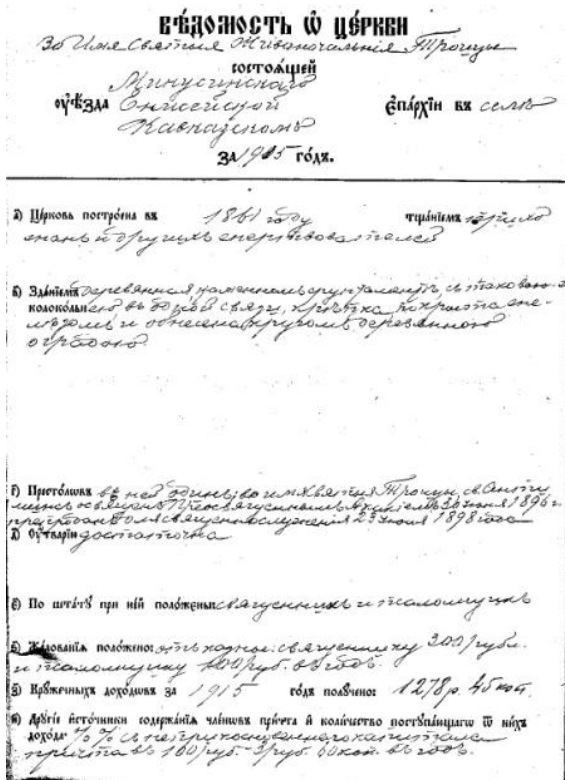 ВѢДОМОСТЬ Ѿ ЦЕ́РКВИ
Во Имя Святыя Живоначальныя Троицы
СОСТОѦ́ЩЕЙ
Минусинскаго
ОУ҆Ѣ́ЗДА Енисейской Є҆ПА́РХЇИ ВЪ селѣ
Кавказскомъ
ЗА 1915 ГО́ДЪ.
а҃) Це́рковь постро́ена въ 1861 году тща́нїемъ прихо
жанъ и другихъ
в҃) Зда́нїемъ деревянная, каменномъ фундаментѣ, съ таковою
колоко́льнею въ одной связи, крѣпка, покрыта
и обнесена кругомъ деревянною
оградою.
г҃) Престо́лѡвъ въ ней одинъ: во имя Святыя Троицы, св. Анти
минсъ освященъ Преосвященнымъ 30 июня 1896 г.
для священнослуженія 25 июня 1898 года
д҃) Оу҆́тварїю достаточна
є҃) По шта́тꙋ при не́й поло́жены: священникъ и псаломщикъ
ѕ҃) Жа́лованїѧ поло́жено: священнику 300 рубл.
и псаломщику 100 руб. въ годъ.
з҃) Крꙋ́жечныхъ дохо́дѡвъ за 1915 го́дъ полꙋ́чено: 1278 р. 45 коп.
и҃) Дрꙋгі́е и҆сто́чники содержа́нїѧ чле́нѡвъ при́чта и҆ коли́чество постꙋпа́ющагѡ ѿ ни́хъ
дохо́да: %% съ неприкосновеннаго капитала
причта въ 100 руб. - 3 руб. 60 коп. въ годъ.